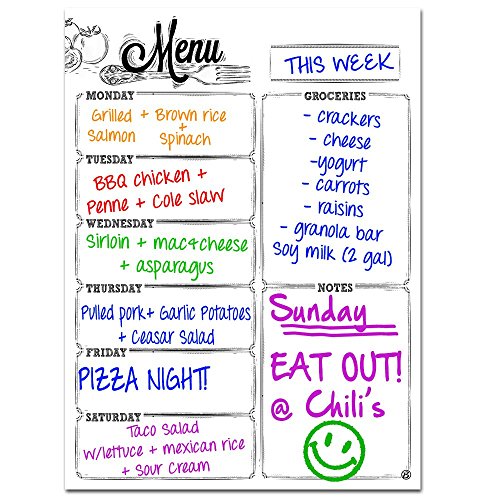 Menu
THIS WEEK
MONDAY
Grilled + Brown rice
Salmon + Spinach
TUESDAY
BBQ chicken +
Penne + Cole slaw
WEDNESDAY
Sirloin + mac+cheese
+ asparagus
THURSDAY
Pulled pork+ Garlic Potatoes
+ Ceasar Salad
FRIDAY
PIZZA NIGHT!
SATURDAY
Taco Salad
w/lettuce + mexican rice
+ Sour Cream
GROCERIES
- crackers
- cheese
-yogurt
- carrots
- raisins
- granola bar
Soy milk (2 gal)
NOTES
Sunday
EAT OUT!
@ Chili's